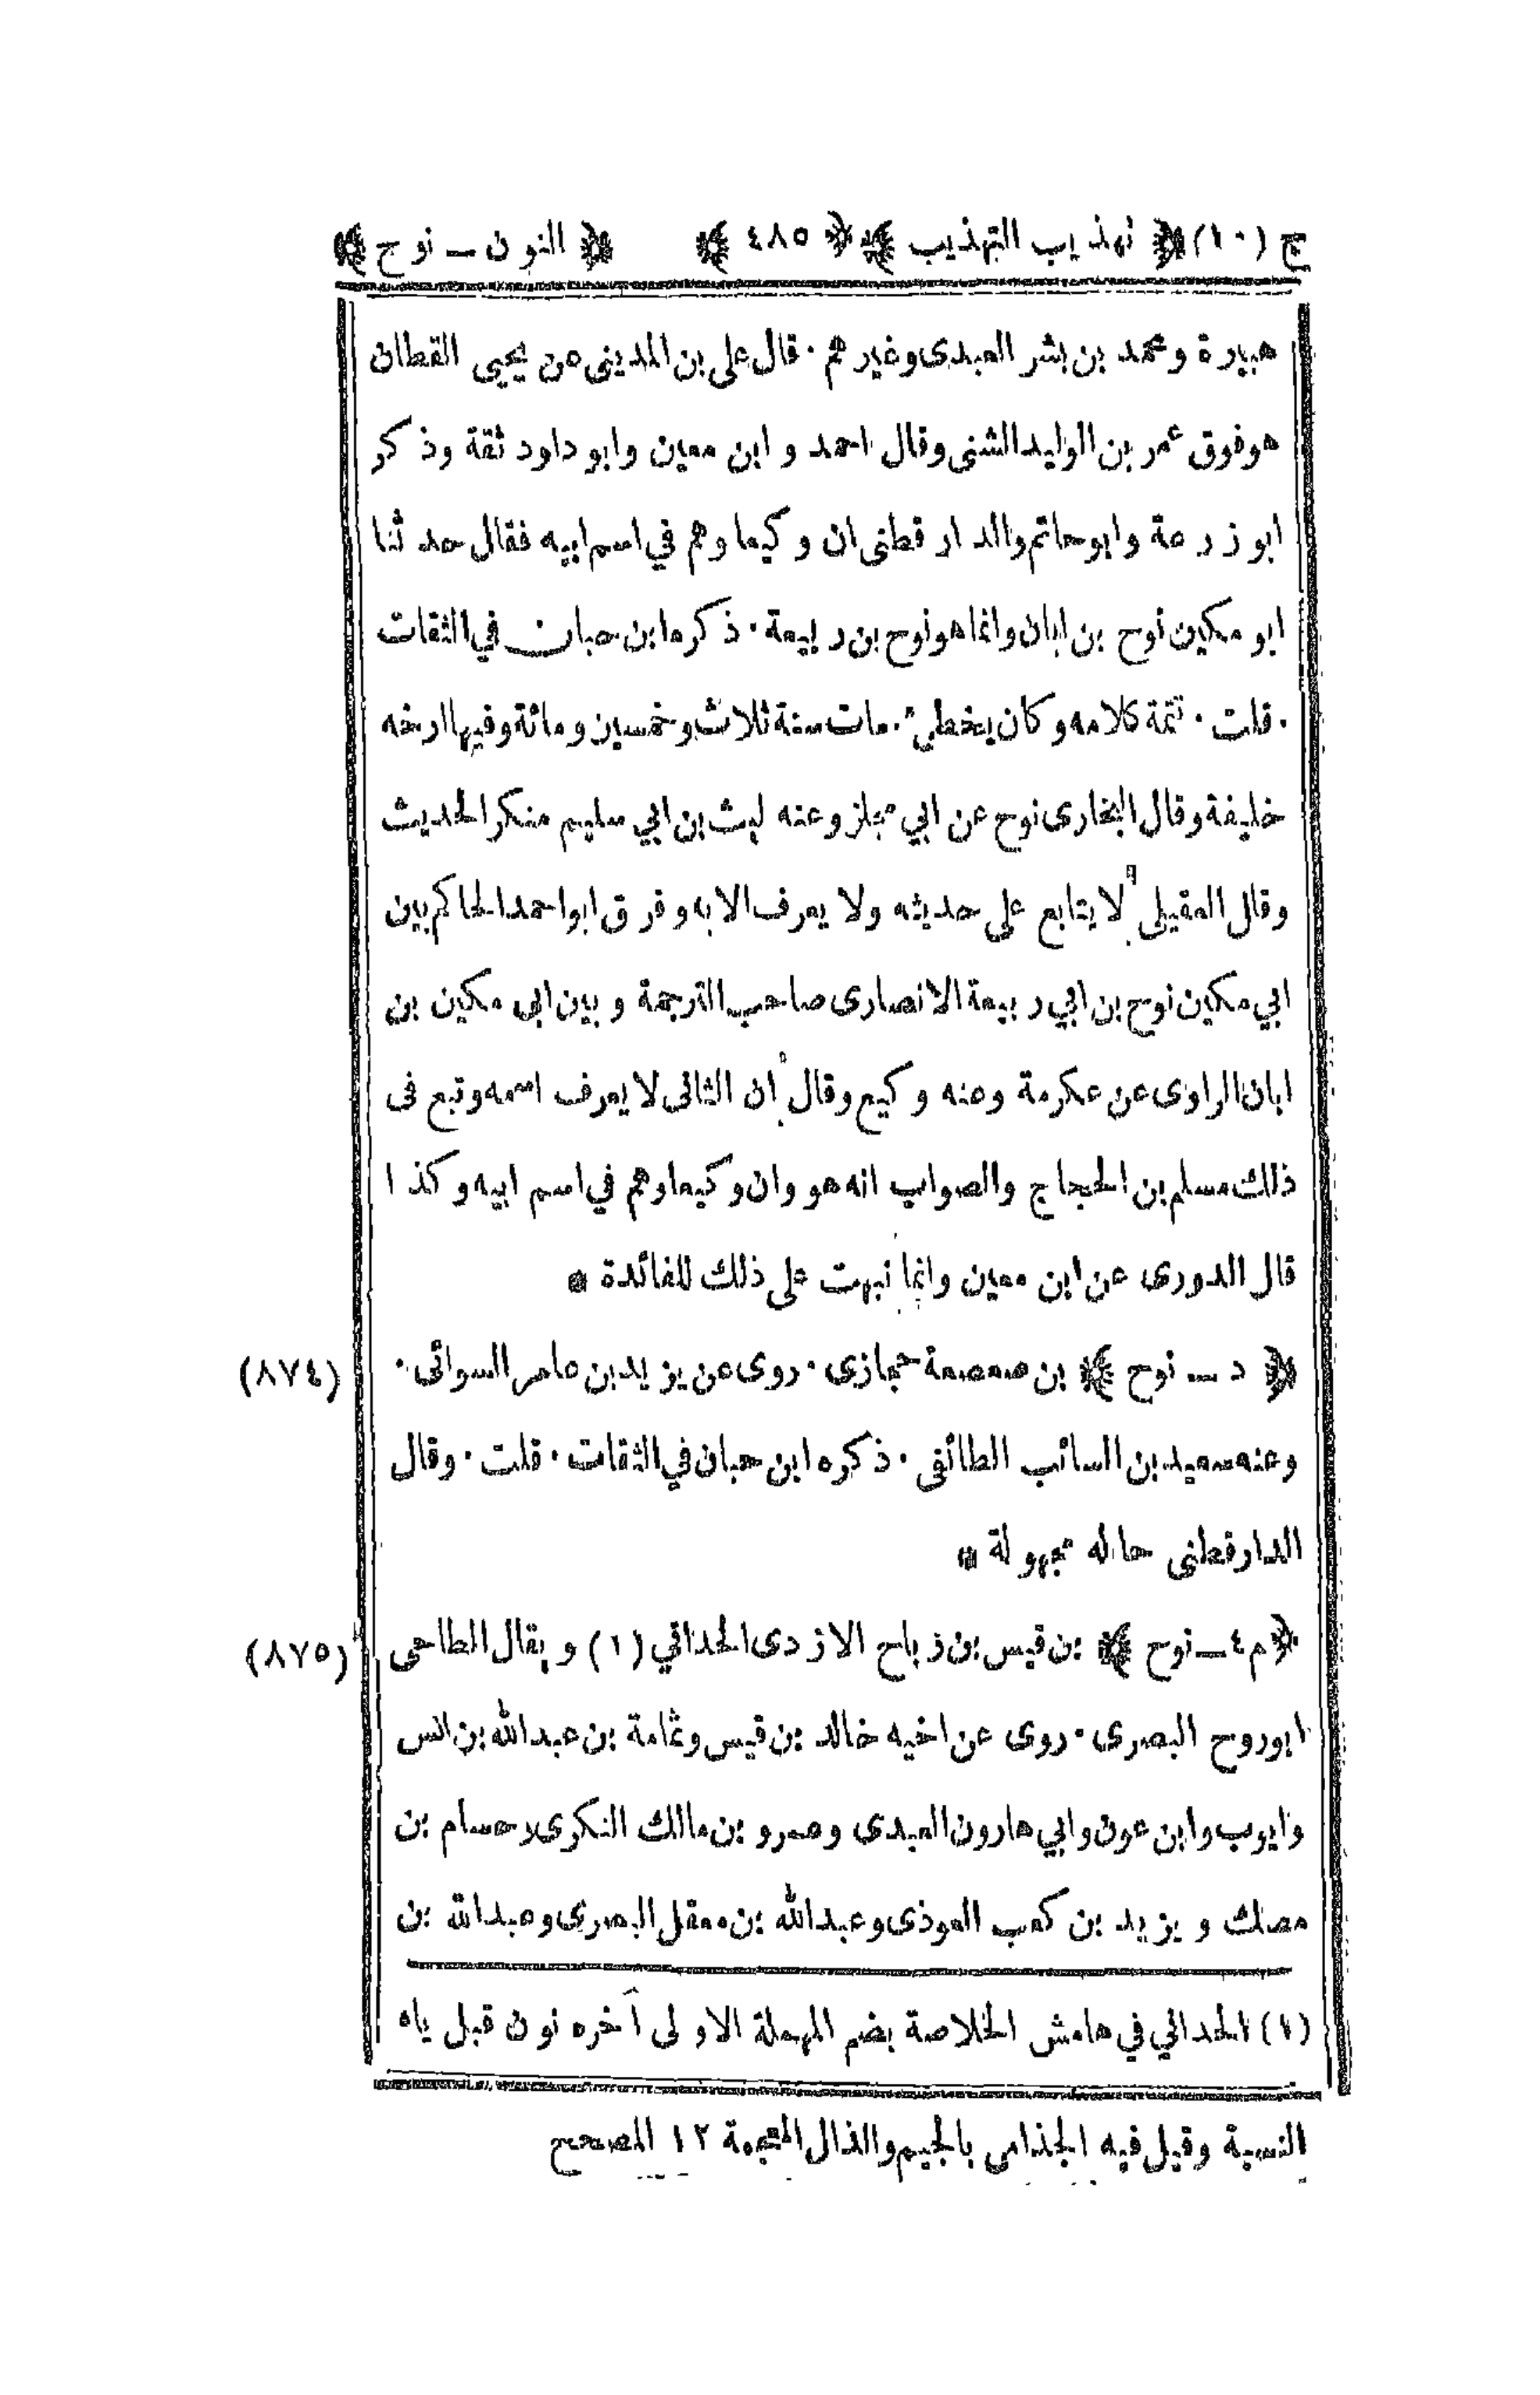 ج (١٠) ﴿ تهذيب التهذيب ﴾ ﴿ ٤٨٥ ﴾ ﴿ النون ــ نوح ﴾
هبيرة ومحمد بن بشر العبدى وغيرهم · قال على بن المدينى عن يحيى القطان
هو فوق عمر بن الوليد الشنى وقال احمد و ابن معين وابو داود ثقة وذكر
ابو زرعة وابو حاتم والدارقطنى ان وكيعا وهم في اسم ابيه فقال حدثنا
ابو مكين نوح بن ابان وانما هو نوح بن ربيعة · ذكره ابن حبان في الثقات
· قلت · تتمة كلامه وكان يخطئ · مات سنة ثلاث وخمسين ومائة وفيها ارخه
خليفة وقال البخارى نوح عن ابي مجلز وعنه ليث بن ابي سليم منكر الحديث
وقال العقيلى لا يتابع على حديثه ولا يعرف الا به وفرق ابو احمد الحاكم بين
ابي مكين نوح بن ابي ربيعة الانصارى صاحب الترجمة وبين ابى مكين بن
ابان الراوى عن عكرمة وعنه وكيع وقال ان الثانى لا يعرف اسمه وتبع فى
ذلك مسلم بن الحجاج والصواب انه هو وان وكيعا وهم في اسم ابيه وكذا
قال الدورى عن ابن معين وانما نبهت على ذلك للفائدة *
﴿ د ــ نوح ﴾ بن صعصعة حجازى · روى عن يزيد بن عامر السوائى · (٨٧٤)
وعنه سعيد بن السائب الطائفى · ذكره ابن حبان في الثقات · قلت · وقال
الدارقطنى حاله مجهولة *
﴿ م ٤ ــ نوح ﴾ بن قيس بن رباح الازدى الحدانى (١) ويقال الطاحى (٨٧٥)
ابو روح البصرى · روى عن اخيه خالد بن قيس وثمامة بن عبد الله بن انس
وايوب وابن عون وابي هارون العبدى وعمرو بن مالك النكرى وحسام بن
مصك و يزيد بن كعب العوذى وعبد الله بن معقل البصرى وعبد الله بن
(١) الحدانى في هامش الخلاصة بضم المهملة الاولى آخره نون قبل ياء
النسبة وقيل فيه الجذامى بالجيم والذال المعجمة ١٢ المصحح